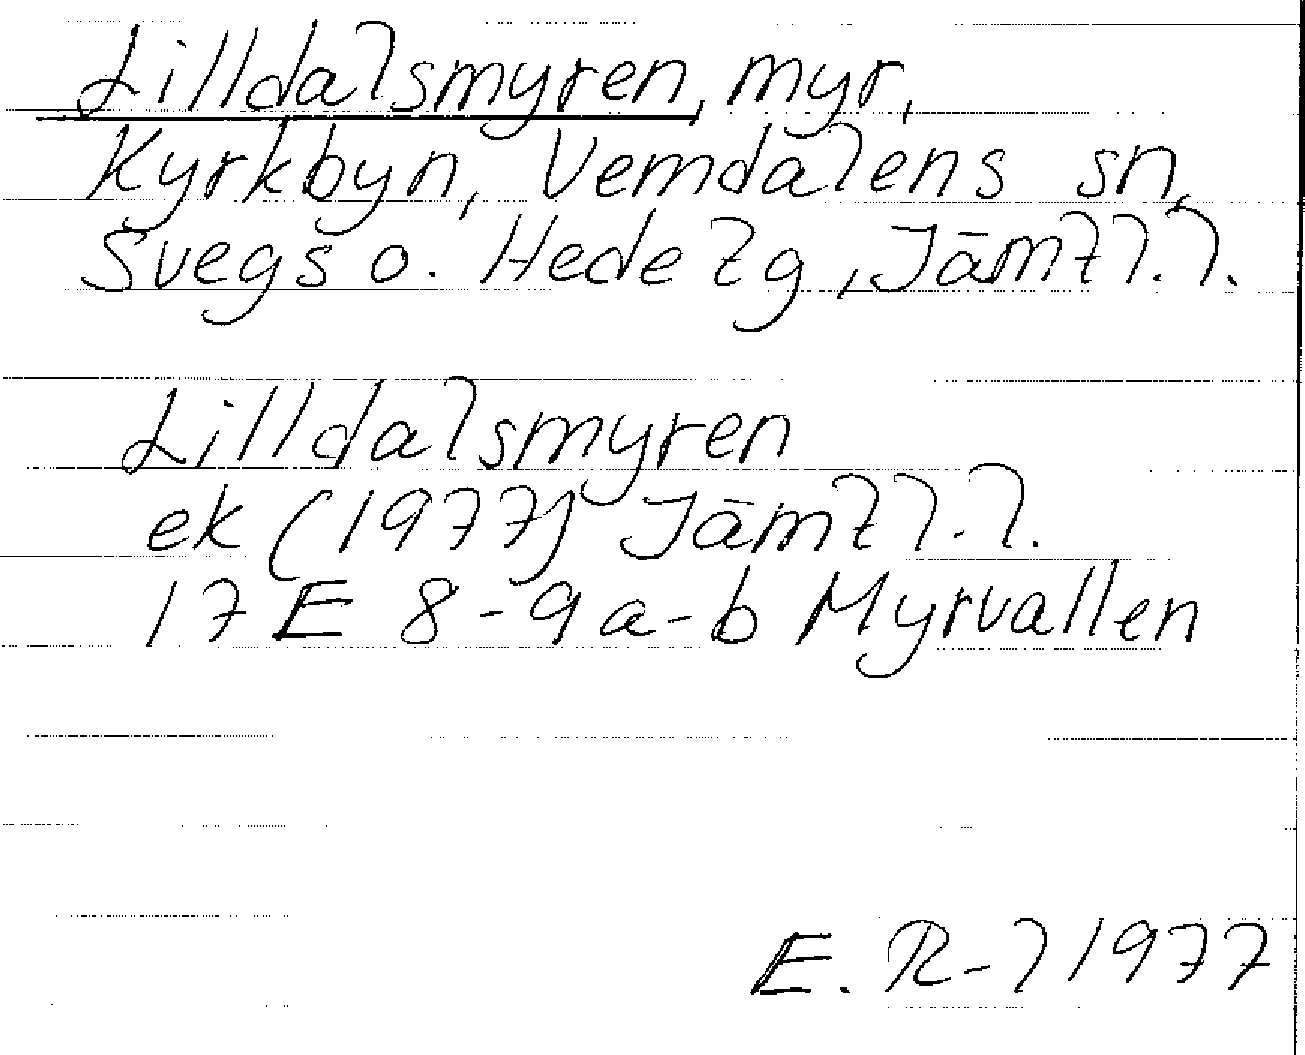 Lilldalsmyren, myr,
Kyrkbyn, Vemdalens sn,
Svegs o. Hede tg, Jämtl.l.
Lilldalsmyren
ek (1977) Jämtl.l.
17 E 8-9 a-b Myrvallen
E. R-l 1977